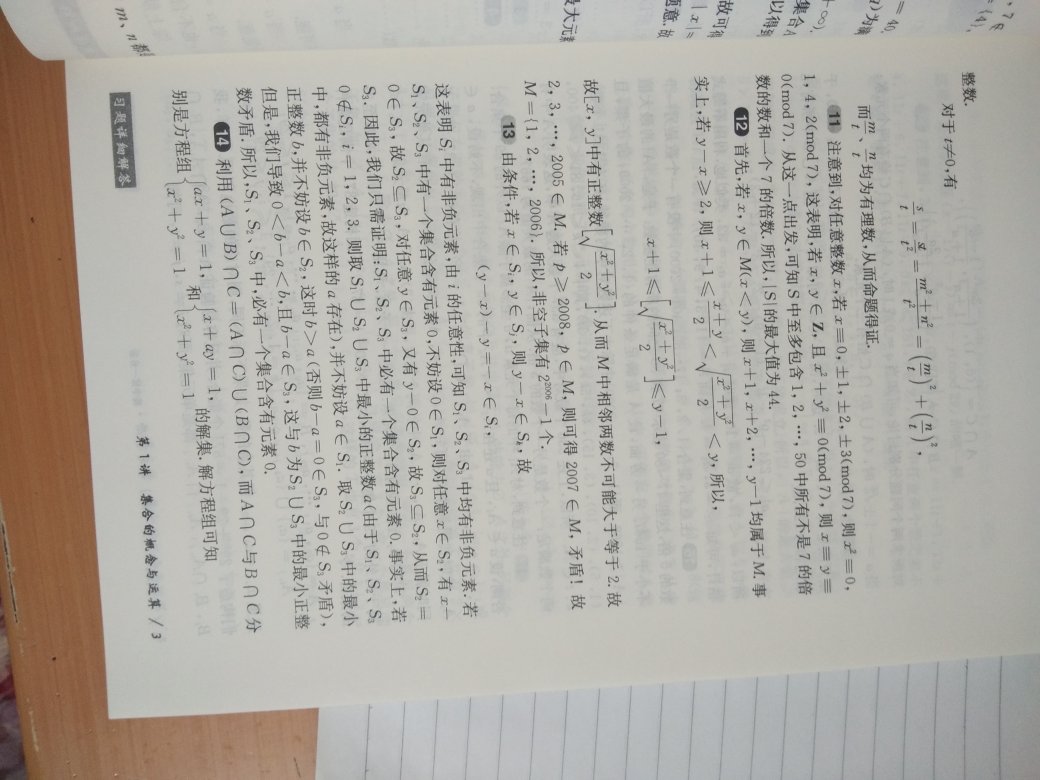 整数.
对于 t≠0,有
s/t = st/t² = (m²+n²)/t² = (m/t)² + (n/t)²,
而 m/t、n/t 均为有理数,从而命题得证.
11 注意到,对任意整数 x,若 x≡0,±1,±2,±3(mod 7),则 x²≡0,
1,4,2(mod 7),这表明,若 x,y∈Z,且 x²+y²≡0(mod 7),则 x≡y≡
0(mod 7).从这一点出发,可知 S 中至多包含 1,2,…,50 中所有不是 7 的倍
数的数和一个 7 的倍数.所以,|S|的最大值为 44.
12 首先,若 x,y∈M(x<y),则 x+1,x+2,…,y-1 均属于 M.事
实上,若 y-x≥2,则 x+1≤(x+y)/2<√((x²+y²)/2)<y,所以,
x+1≤[√((x²+y²)/2)]≤y-1,
故[x,y]中有正整数[√((x²+y²)/2)].从而 M 中相邻两数不可能大于等于 2.故
2,3,…,2005∈M.若 p≥2008,p∈M,则可得 2007∈M,矛盾!故
M={1,2,…,2006}.所以,非空子集有 2²⁰⁰⁶-1 个.
13 由条件,若 x∈Sᵢ,y∈Sⱼ,则 y-x∈Sₖ,故
(y-x)-y=-x∈Sᵢ,
这表明 Sᵢ 中有非负元素,由 i 的任意性,可知 S₁、S₂、S₃ 中均有非负元素.若
S₁、S₂、S₃ 中有一个集合含有元素 0,不妨设 0∈S₁,则对任意 x∈S₂,有 x-
0∈S₃,故 S₂⊆S₃,对任意 y∈S₃,又有 y-0∈S₂,故 S₃⊆S₂,从而 S₂=
S₃.因此,我们只需证明:S₁、S₂、S₃ 中必有一个集合含有元素 0.事实上,若
0∉Sᵢ,i=1,2,3.则取 S₁∪S₂∪S₃ 中最小的正整数 a(由于 S₁、S₂、S₃
中,都有非负元素,故这样的 a 存在),并不妨设 a∈S₁.取 S₂∪S₃ 中的最小
正整数 b,并不妨设 b∈S₂,这时 b>a(否则 b-a=0∈S₃,与 0∉S₃ 矛盾),
但是,我们导致 0<b-a<b,且 b-a∈S₃,这与 b 为 S₂∪S₃ 中的最小正整
数矛盾.所以,S₁、S₂、S₃ 中,必有一个集合含有元素 0.
14 利用(A∪B)∩C=(A∩C)∪(B∩C),而 A∩C 与 B∩C 分
别是方程组{ax+y=1, x²+y²=1 和{x+ay=1, x²+y²=1 的解集.解方程组可知
习题详细解答
第 1 讲 集合的概念与运算 / 3